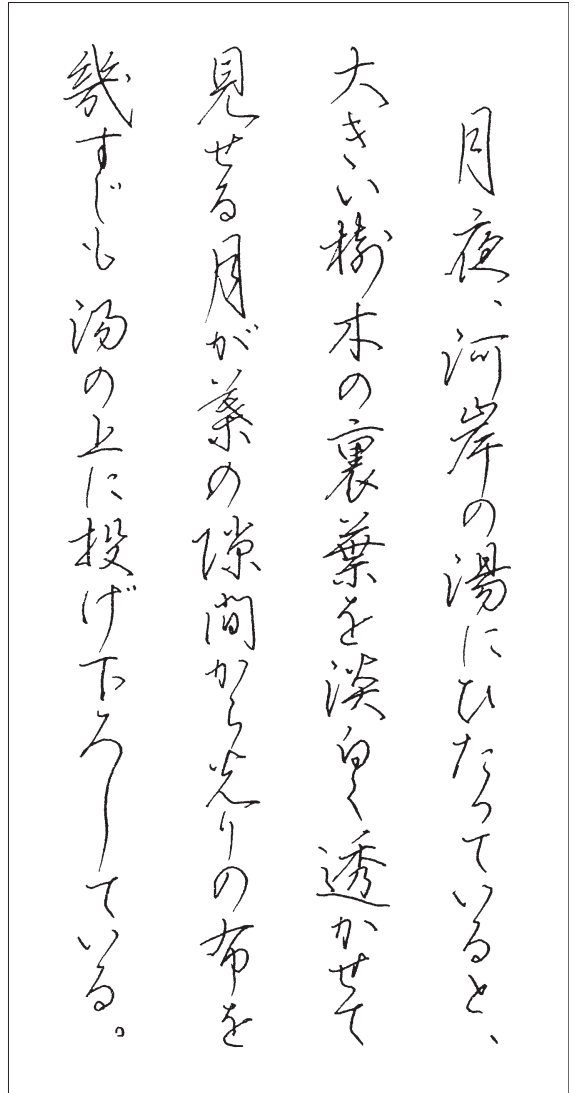 月夜、河岸の湯にひたっていると、
大きい樹木の裏葉を淡白く透かせて
見せる月が葉の隙間から光りの布を
幾すじも湯の上に投げ下ろしている。